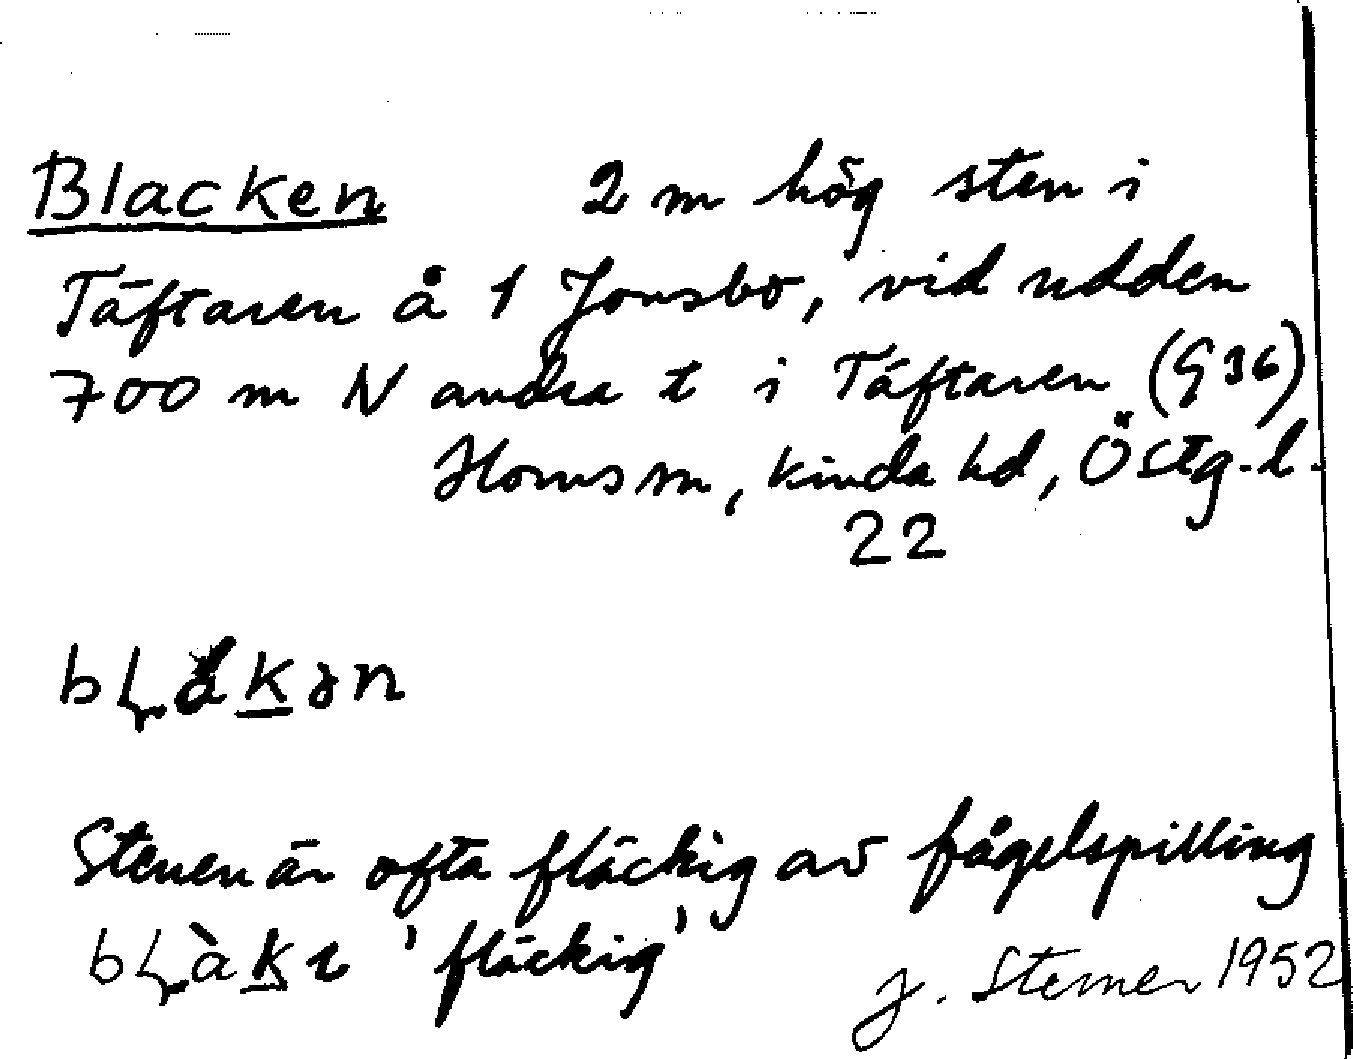 Blacken 2 m hög sten i
Täftaren å 1 Jonsbo, vid udden
700 m N andra t i Täftaren (G 36)
Horns sn, Kinda hd, Östg. l.
22
bḷakən
Stenen är ofta fläckig av fågelspilling
bḷàkɩ 'fläckig'
J. Sterner 1952